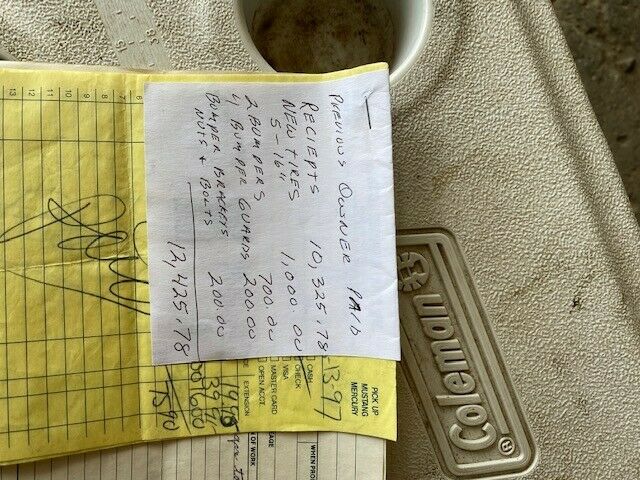 PREVIOUS OWNER PAID
RECIEPTS 10,325.78
NEW TIRES 1,000.00
5-16"
2 BUMPERS 700.00
4 BUMPER GUARDS 200.00
BUMPER BRACKETS 200.00
NUTS & BOLTS
12,425.78
13-97
PICK UP
MUSTANG
MERCURY
CASH
CHECK
VISA
MASTER CARD
OPEN ACCT.
EXTENSION
OF WORK
WHEN PRO
6
7
8
9
10
11
12
13
Coleman®